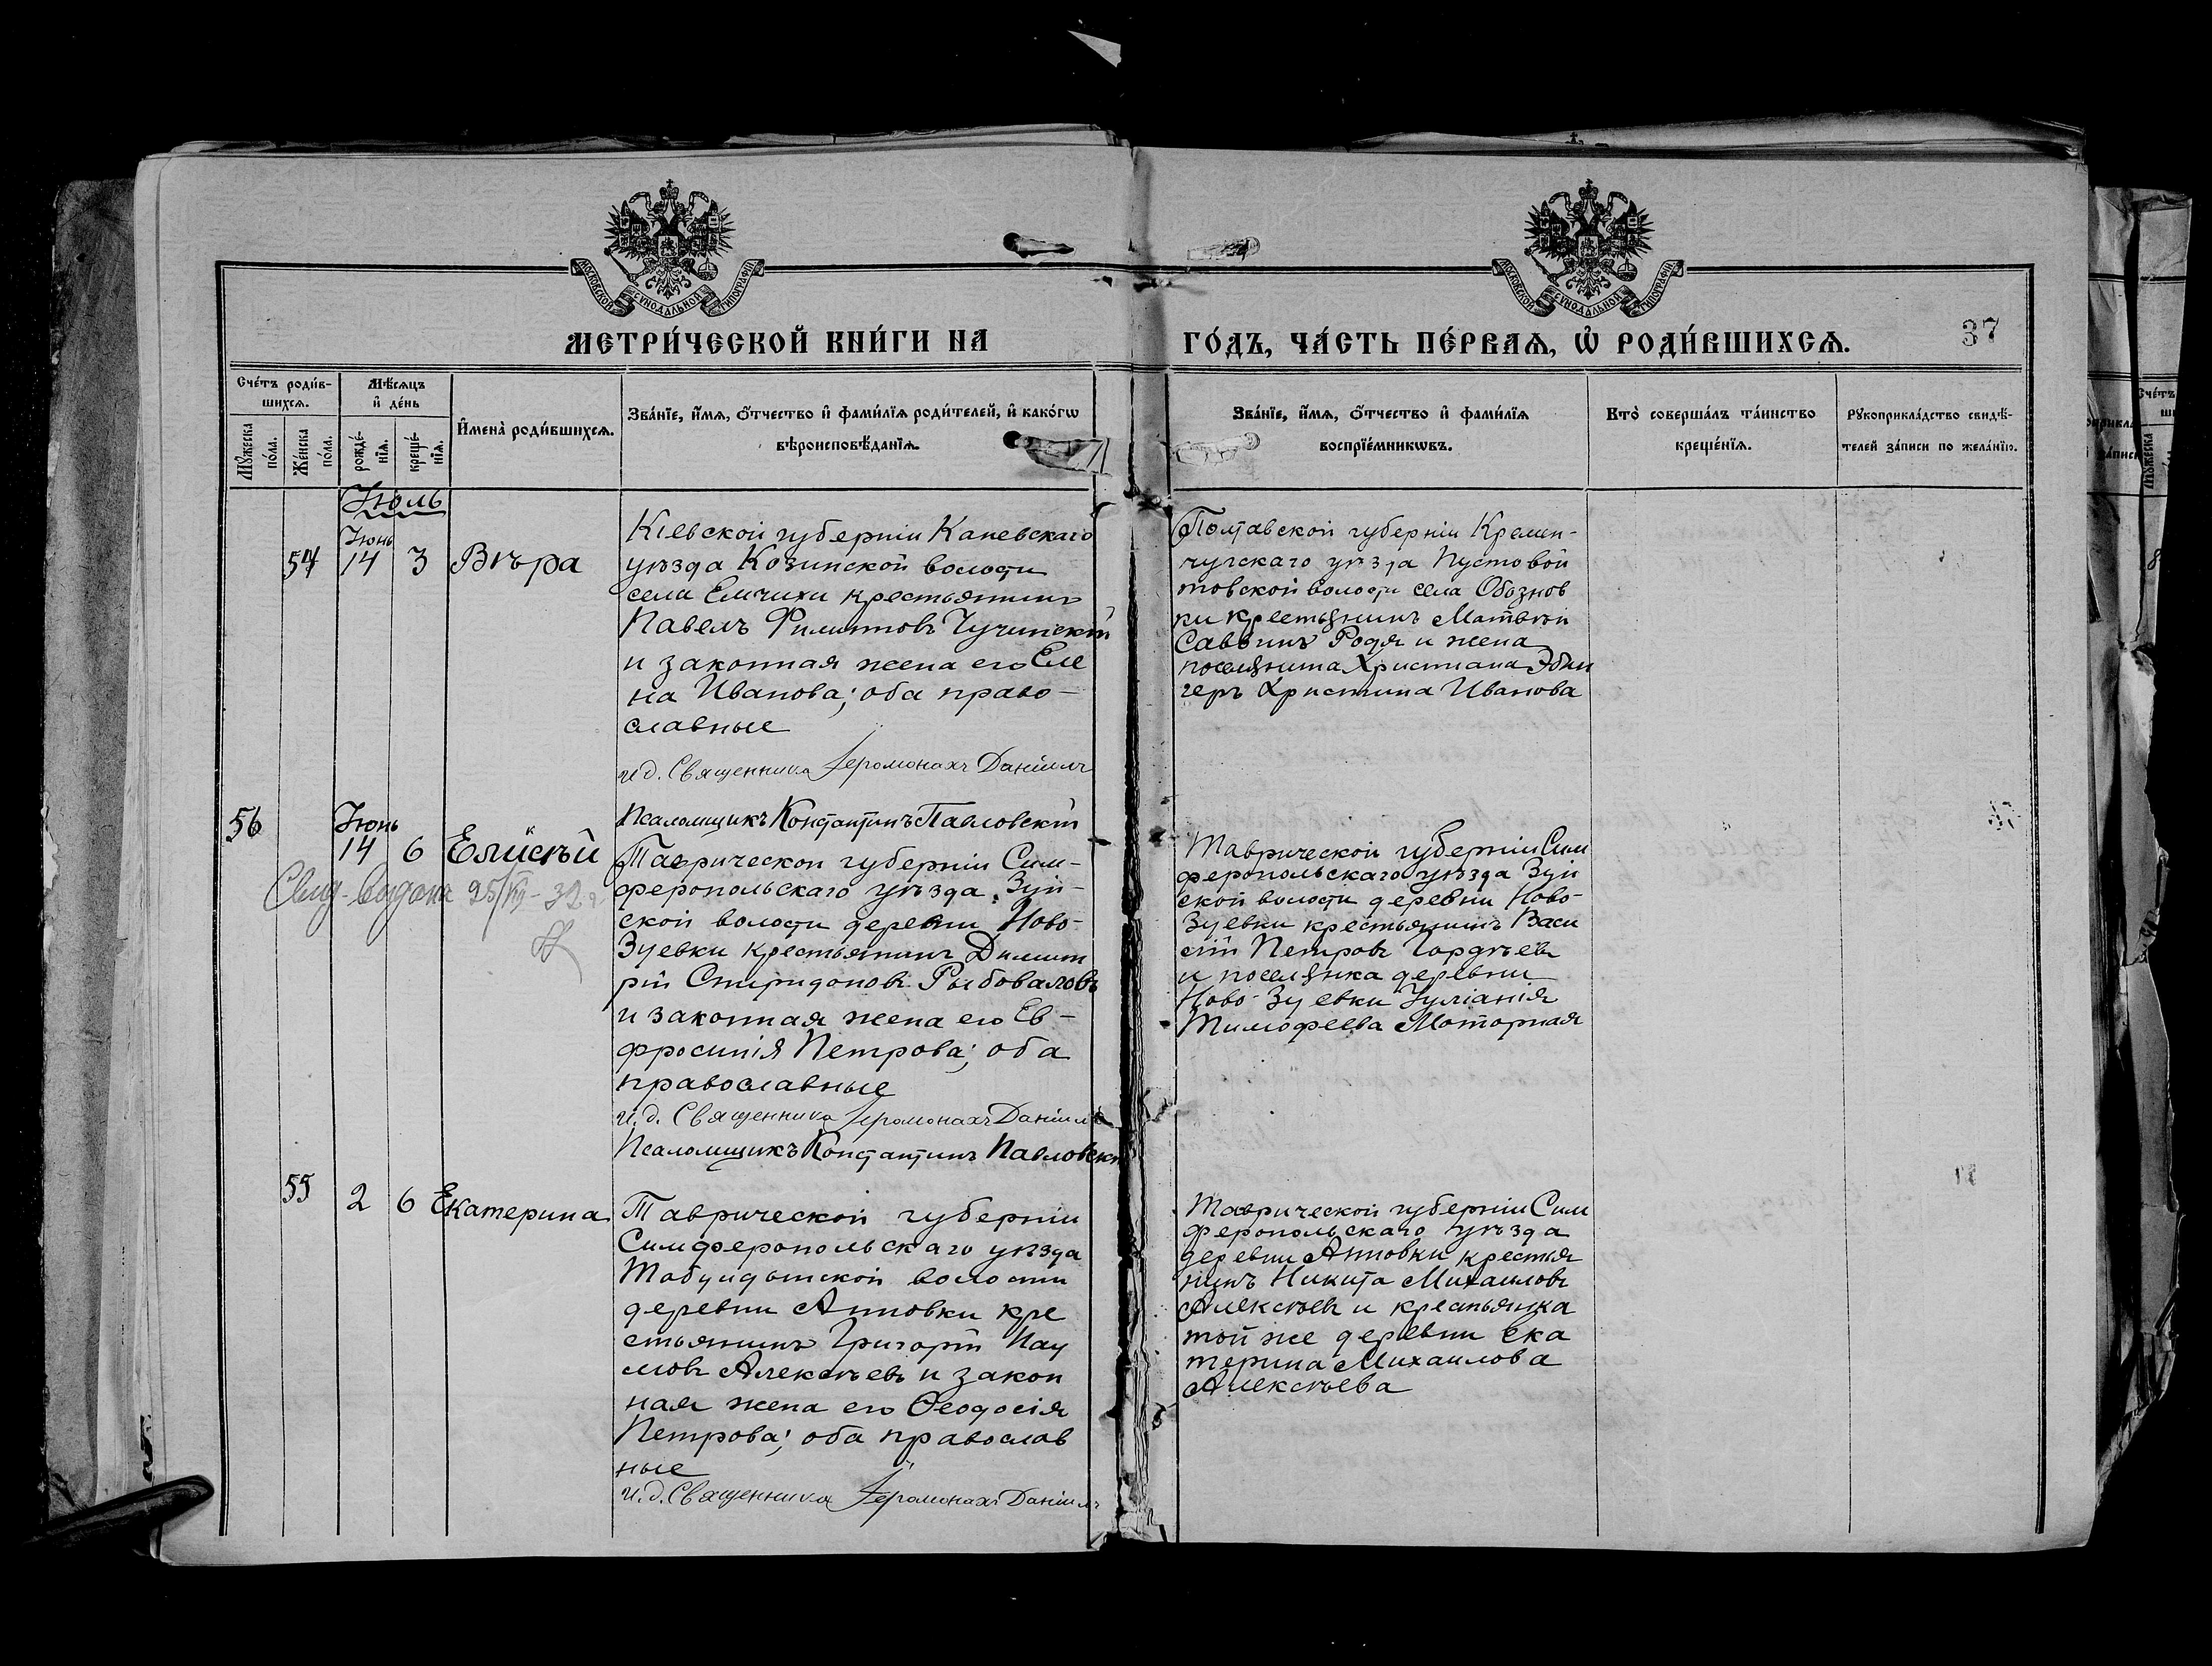 МОСКОВСКОЙ СѴНОДАЛЬНОЙ ТИПОГРАФІИ
МОСКОВСКОЙ СѴНОДАЛЬНОЙ ТИПОГРАФІИ
МЕТРИ́ЧЕСКОЙ КНИ́ГИ НА
ГО́ДЪ, ЧА́СТЬ ПЕ́РВАѦ, Ѡ҆ РОДИ́ВШИХСѦ.
37
Сче́тъ роди́в-
шихсѧ.
Мꙋ́жеска
по́ла.
Же́нска
по́ла.
Мѣ́сѧцъ
и҆ де́нь
рожде́-
нїѧ.
креще́-
нїѧ.
И҆мена̀ роди́вшихсѧ.
Зва́нїе, и҆́мѧ, ѻ҆́тчество и҆ фами́лїѧ роди́телей, и҆ како́гѡ
вѣроисповѣ́данїѧ.
Зва́нїе, и҆́мѧ, ѻ҆́тчество и҆ фами́лїѧ
воспрїе́мникѡвъ.
Кто̀ соверша́лъ та́инство
креще́нїѧ.
Рꙋкоприкла́дство свидѣ́-
телей за́писи по жела́нїю.
Іюль
54
Іюнь
14
3
Вѣра
Кіевской губерніи Каневскаго
уѣзда Козинской волости
села Емчихи крестьянинъ
Павелъ Филиппов Чучинскій
и законная жена его Еле
на Иванова; оба право-
славные
и.д. Священника Іеромонахъ Даніилъ
Псаломщикъ Константинъ Павловскій
Полтавской губерніи Кремен-
чугскаго уѣзда Пустовой
товской волости села Обознов
ки крестьянинъ Матвѣй
Саввинъ Родя и жена
поселянина Христиана Эбин
геръ Христина Иванова
56
Іюнь
14
6
Елисѣй
Свид. выдана 25/III-32 г
Таврической губерніи Сим-
феропольскаго уѣзда Зуй-
ской волости деревни Ново-
Зуевки крестьянинъ Димит
рій Спиридоновъ Рыбоваловъ
и законная жена его Ев-
фросинія Петрова; оба
православные
и.д. Священника Іеромонахъ Даніилъ
Псаломщикъ Константинъ Павловскій
Таврической губерніи Сим
феропольскаго уѣзда Зуй
ской волости деревни Ново-
Зуевки крестьянинъ Васи
лій Петровъ Гордѣевъ
и поселянка деревни
Ново-Зуевки Іуліанія
Тимофеева Моторная
55
2
6
Екатерина
Таврической губерніи
Симферопольскаго уѣзда
Табулдынской волости
деревни Анновки кре
стьянинъ Григорій Нау
мовъ Алексѣевъ и закон
ная жена его Ѳеодосія
Петрова; оба православ
ные
и.д. Священника Іеромонахъ Даніилъ
Таврической губерніи Сим
феропольскаго уѣзда
деревни Анновки крестья
нинъ Никита Михаиловъ
Алексѣевъ и крестьянка
той же деревни Ека
терина Михаилова
Алексѣева